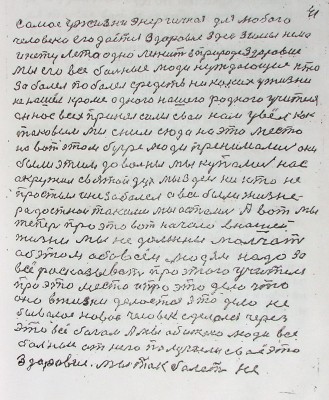 41
самое ужизни энергичная для любого
человека его дается здоровье здесь зимы нема
и нету лета одно лежит в природе здоровье
мы его все больные люди нуждающие кто
заболел поболел средств никаких ужизни
не нашел кроме одного нашего родного учителя
он нас всех принял силы свои нам увёл как
таковым мы с ним сюда на это место
на вот этом бугре люди принимали они
были этим довольны мы купали нас
окружил святой дух мы здесь ни кто не
простыл и не заболел а все были жизне-
радостные такими мы остались А вот мы
теперь про это вот начало в нашей
жизни мы не должны молчать
об этом обо всём людям надо за
всё рассказывать про этого учителя
про это место и про это дело что
оно в жизни делается это дело не
бывалое новое человек сделался через
это всё богом А мы обиженные люди все
больные от него получили свое это
здоровие. мы так болеть не